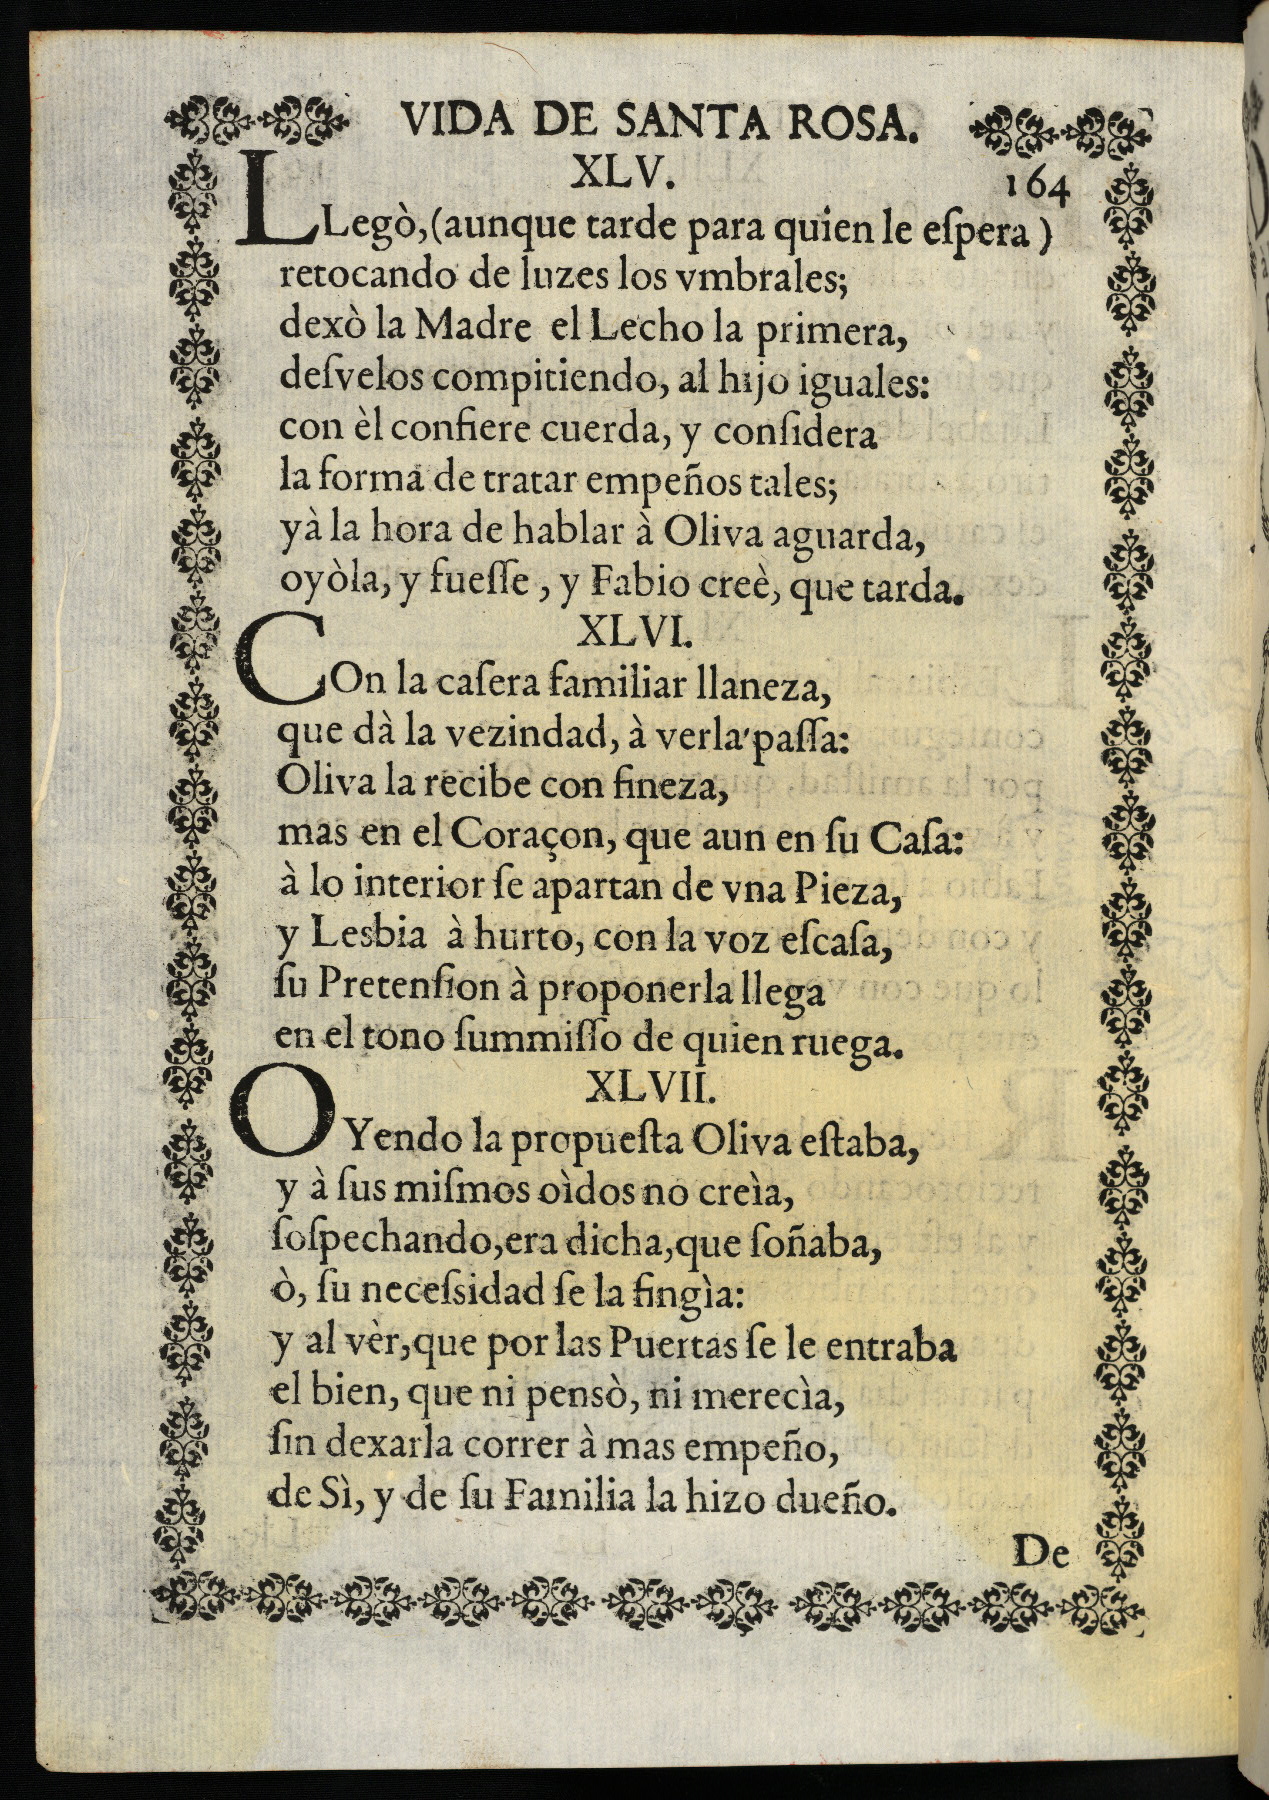 VIDA DE SANTA ROSA.
XLV.
164
LLegò,(aunque tarde para quien le eſpera )
retocando de luzes los vmbrales;
dexò la Madre el Lecho la primera,
deſvelos compitiendo, al hijo iguales:
con èl confiere cuerda, y conſidera
la forma de tratar empeños tales;
yà la hora de hablar à Oliva aguarda,
oyòla, y fueſſe , y Fabio creè, que tarda.
XLVI.
COn la caſera familiar llaneza,
que dà la vezindad, à verla paſſa:
Oliva la recibe con fineza,
mas en el Coraçon, que aun en ſu Caſa:
à lo interior ſe apartan de vna Pieza,
y Lesbia à hurto, con la voz eſcaſa,
ſu Pretenſion à proponerla llega
en el tono ſummiſſo de quien ruega.
XLVII.
OYendo la propueſta Oliva eſtaba,
y à ſus miſmos oìdos no creìa,
ſoſpechando,era dicha,que ſoñaba,
ò, ſu neceſsidad ſe la fingìa:
y al vèr,que por las Puertas ſe le entraba
el bien, que ni pensò, ni merecìa,
ſin dexarla correr à mas empeño,
de Sì, y de ſu Familia la hizo dueño.
De